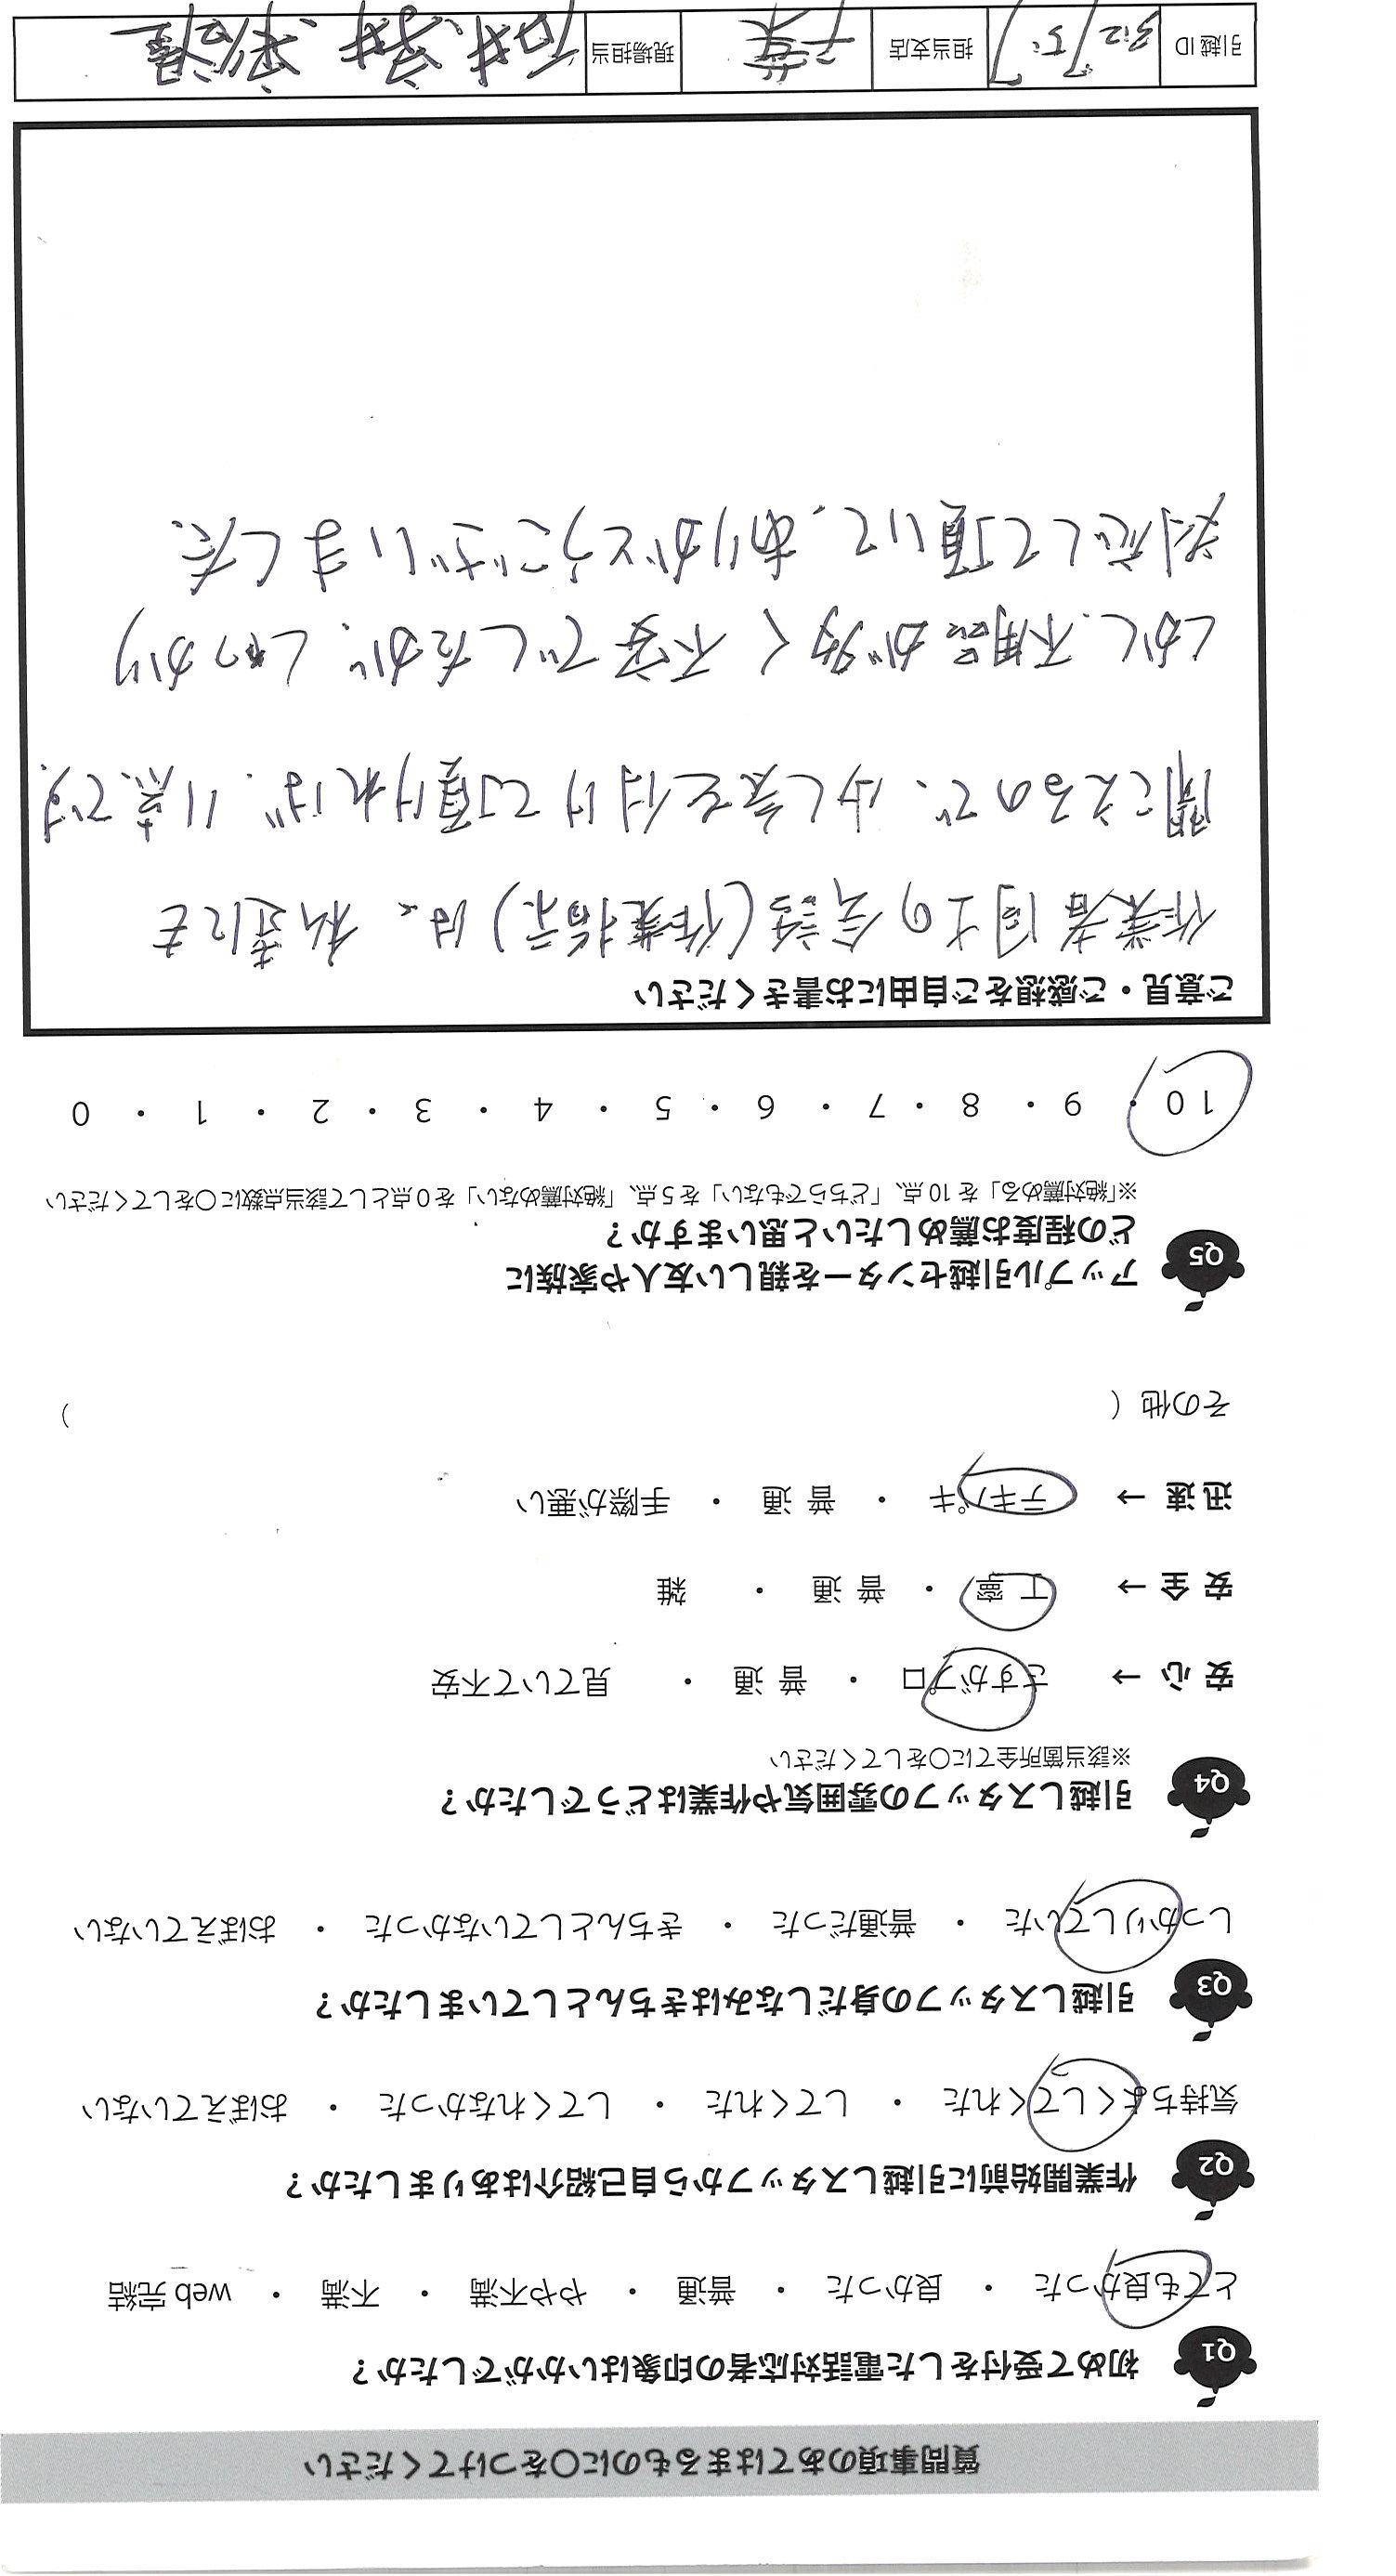 質問事項のあてはまるものに〇をつけてください
Q1 初めて受付をした電話対応者の印象はいかがでしたか？
とても良かった ・ 良かった ・ 普通 ・ やや不満 ・ 不満 ・ web 完結
Q2 作業開始前に引越しスタッフから自己紹介はありましたか？
気持ちよくしてくれた ・ してくれた ・ してくれなかった ・ おぼえていない
Q3 引越しスタッフの身だしなみはきちんとしていましたか？
しっかりしていた ・ 普通だった ・ きちんとしていなかった ・ おぼえていない
Q4 引越しスタッフの雰囲気や作業はどうでしたか？
※該当箇所全てに〇をしてください
安 心 → さすがプロ ・ 普 通 ・ 見ていて不安
安 全 → 丁 寧 ・ 普 通 ・ 雑
迅 速 → テキパキ ・ 普 通 ・ 手際が悪い
その他（ ）
Q5 アップル引越センターを親しい友人や家族に
どの程度お薦めしたいと思いますか？
※「絶対薦める」を 10 点、「どちらでもない」を 5 点、「絶対薦めない」を 0 点として該当点数に〇をしてください
10 ・ 9 ・ 8 ・ 7 ・ 6 ・ 5 ・ 4 ・ 3 ・ 2 ・ 1 ・ 0
ご意見・ご感想をご自由にお書きください
作業者同士の会話(作業指示)は、私達にも
聞こえるので、少し気を付けて頂ければ、11点です。
しかし、不用品が多く不安でしたが、しっかり
対応して頂いて、ありがとうございました。
引越 ID 担当支店 千葉 現場担当